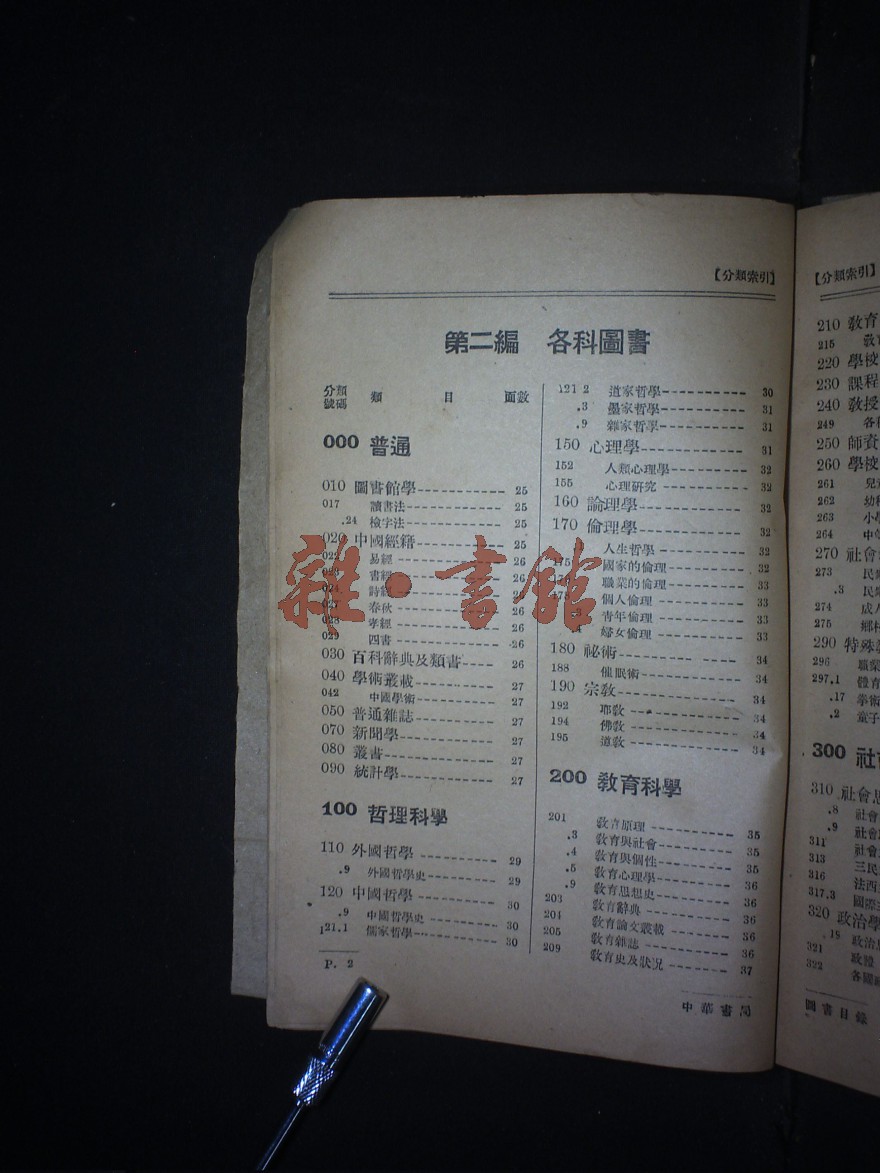 【分類索引】
第二編 各科圖書
分類號碼 類 目 面數
000 普通
010 圖書館學 25
017 讀書法 25
.24 檢字法 25
020 中國經籍 25
易經 26
書經 26
024 詩經
027 春秋 26
028 孝經 26
029 四書 26
030 百科辭典及類書 26
040 學術叢載 27
042 中國學術 27
050 普通雜誌 27
070 新聞學 27
080 叢書 27
090 統計學 27
100 哲理科學
110 外國哲學 29
.9 外國哲學史 29
120 中國哲學 30
.9 中國哲學史 30
121.1 儒家哲學 30
P. 2
121 2 道家哲學 30
.3 墨家哲學 31
.9 雜家哲學 31
150 心理學 31
152 人類心理學 32
155 心理研究 32
160 論理學 32
170 倫理學 32
人生哲學 32
175 國家的倫理 32
176 職業的倫理 33
178 個人倫理 33
.3 青年倫理 33
.4 婦女倫理 33
180 祕術 34
188 催眠術 34
190 宗教 34
192 耶教 34
194 佛教 34
195 道教 34
200 教育科學
201 教育原理 35
.3 教育與社會 35
.4 教育與個性 35
.5 教育心理學 36
.9 教育思想史 36
203 教育辭典 36
204 教育論文叢載 36
205 教育雜誌 36
209 教育史及狀况 37
中華書局
雜·書館
【分類索引】
210 教育
215 教
220 學校
230 課程
240 教授
249 各種
250 師資
260 學校
261 兒
262 幼稚
263 小學
264 中
270 社會
273 民衆
.3 民衆
274 成人
275 鄉村
290 特殊
296 職業
297.1 體育
.17 拳術
.2 童子
300 社會
310 社會思
.8 社會
.9 社會
311 社會
313 三民
316 法西
317.3 國際
320 政治學
.19 政治
321 政體
322 各國
圖書目錄